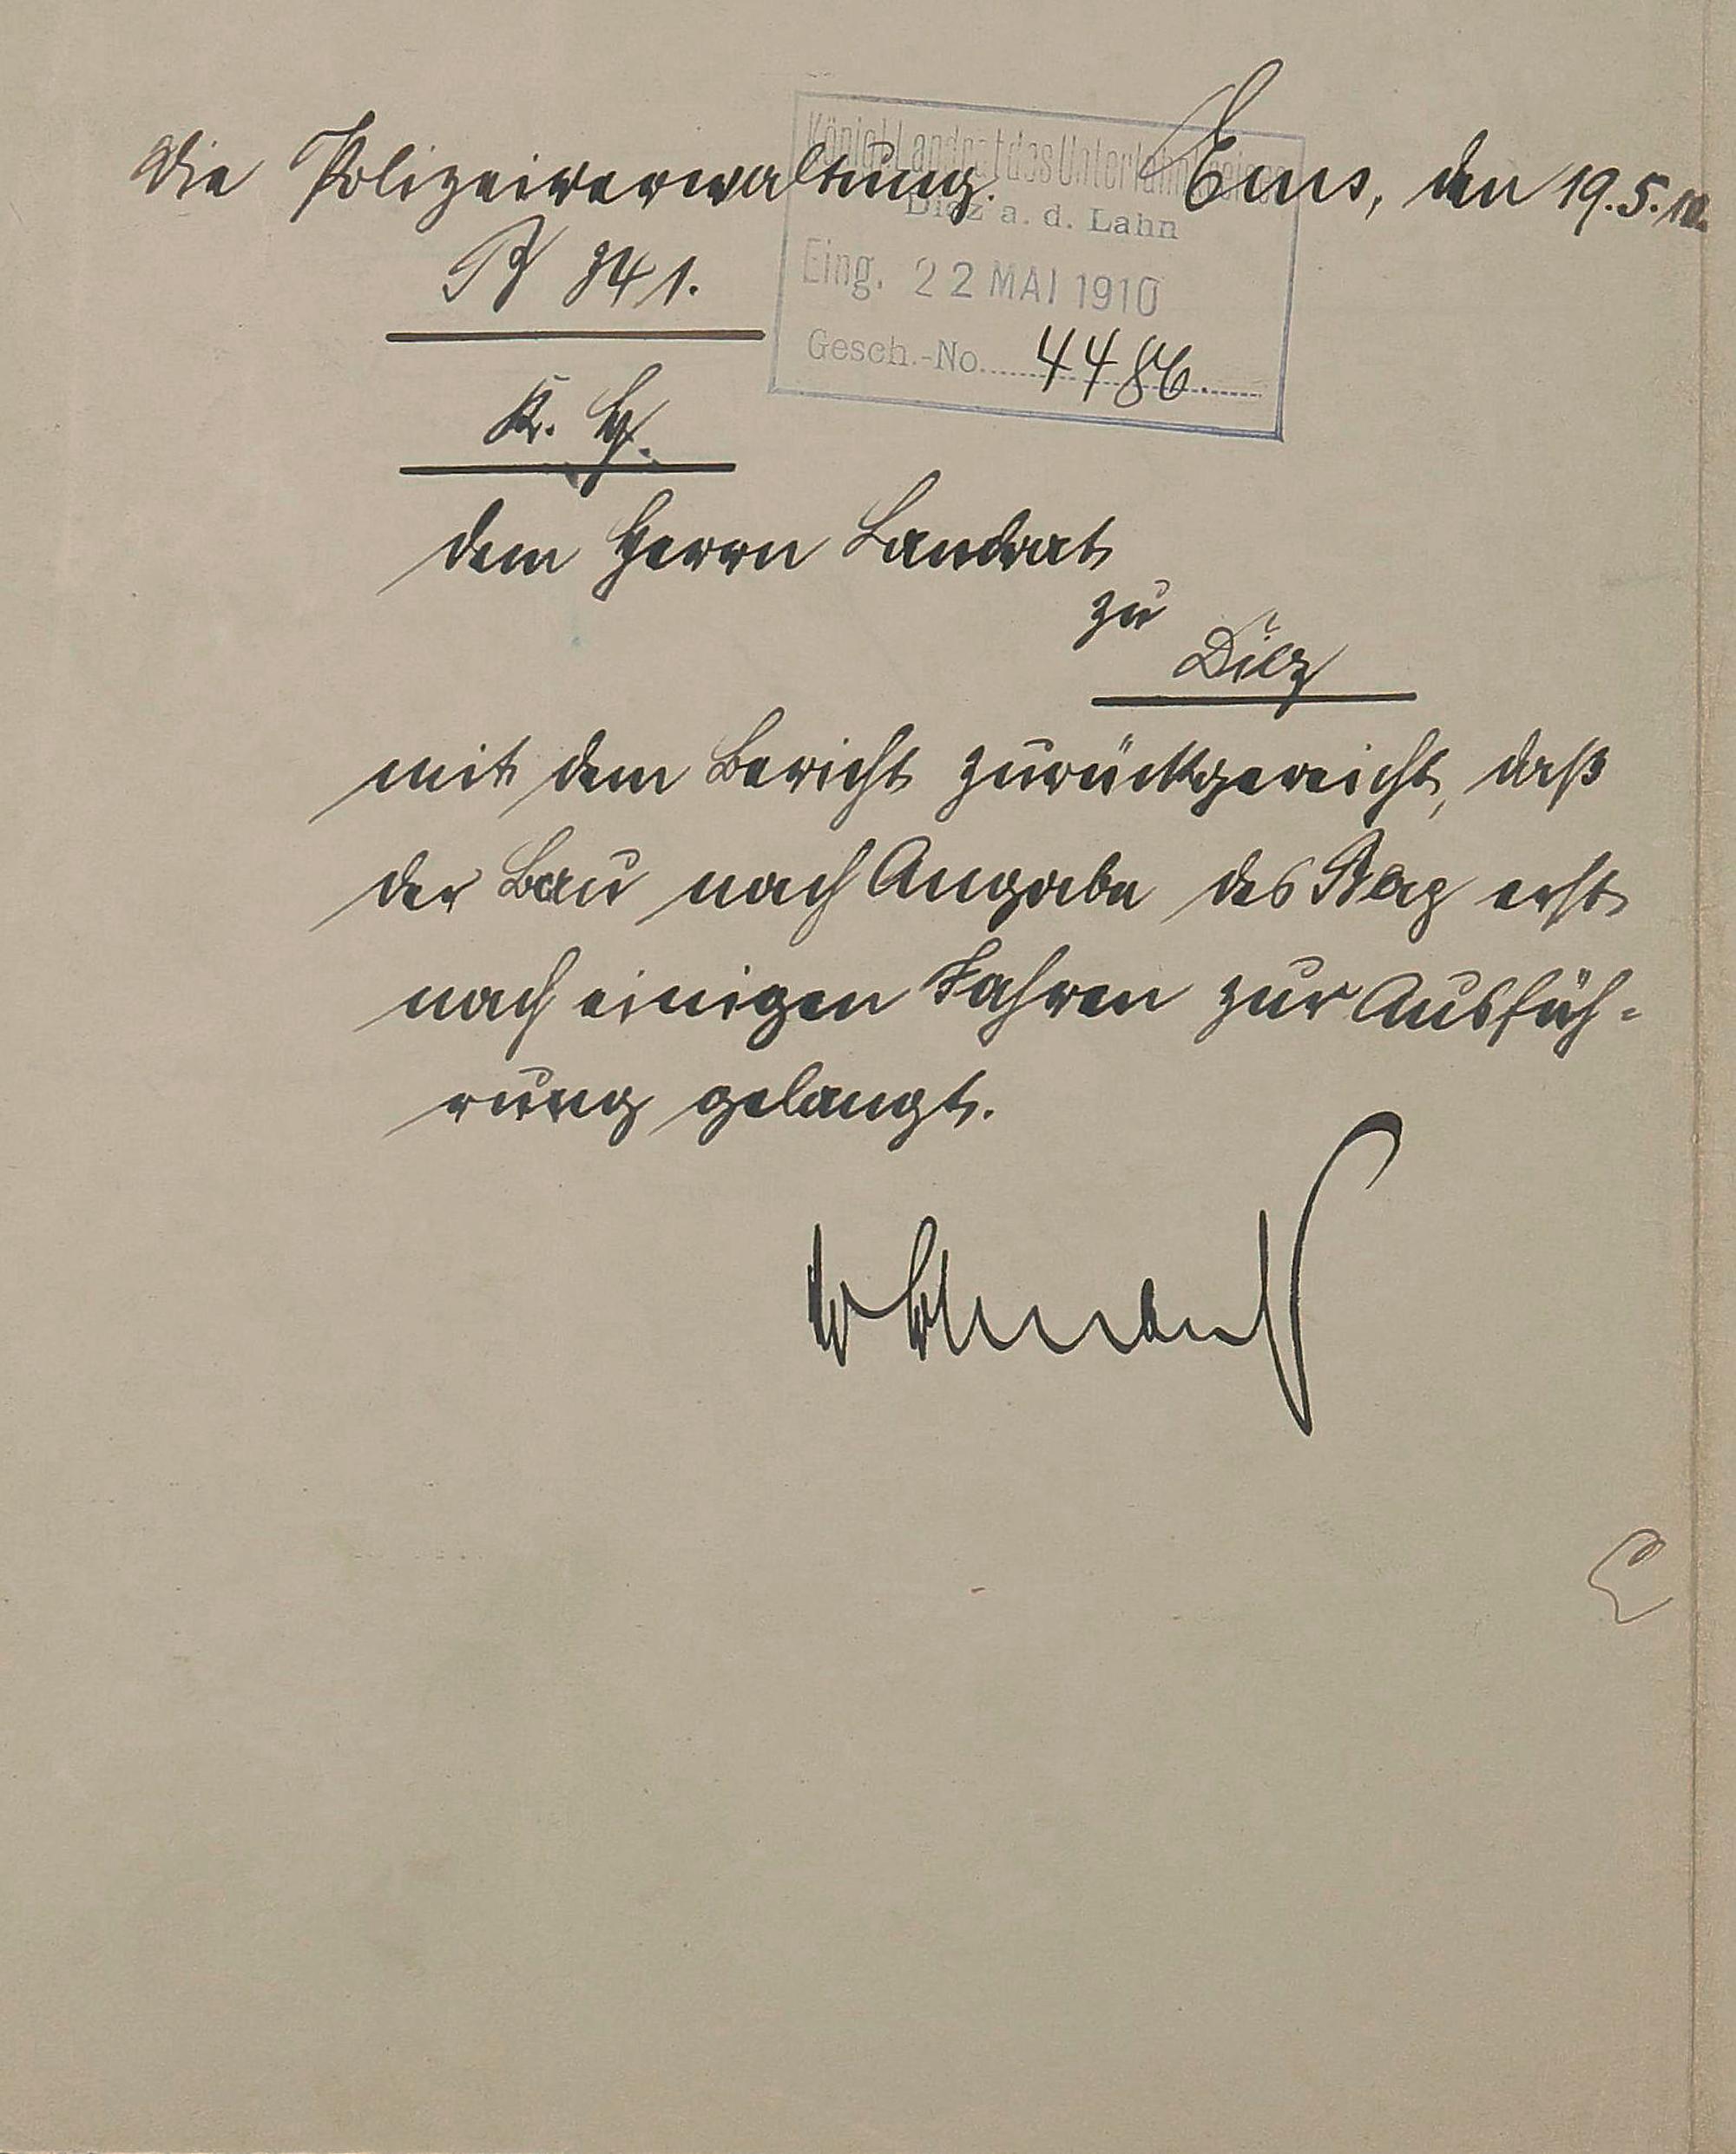 Die Polizeiverwaltung. Ems, den 19.5.10.
Königl. Landrat des Unterlahnkreises
Diez a. d. Lahn
Eing. 22 MAI 1910
Gesch.-No. 4486.
941.
K. H.
dem Herrn Landrat
zu
Diez
mit dem Bericht zurückgereicht, daß
der Bau nach Angabe des erst
nach einigen Jahren zur Ausfüh-
rung gelangt.